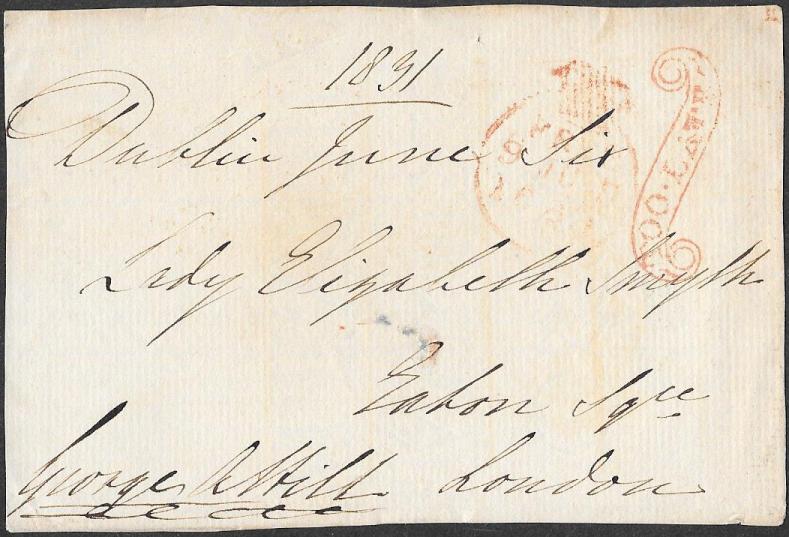 1831
Dublin June Six
TOO·LATE
Lady Elizabeth Smyth
Eaton Sqre
George A Hill
London